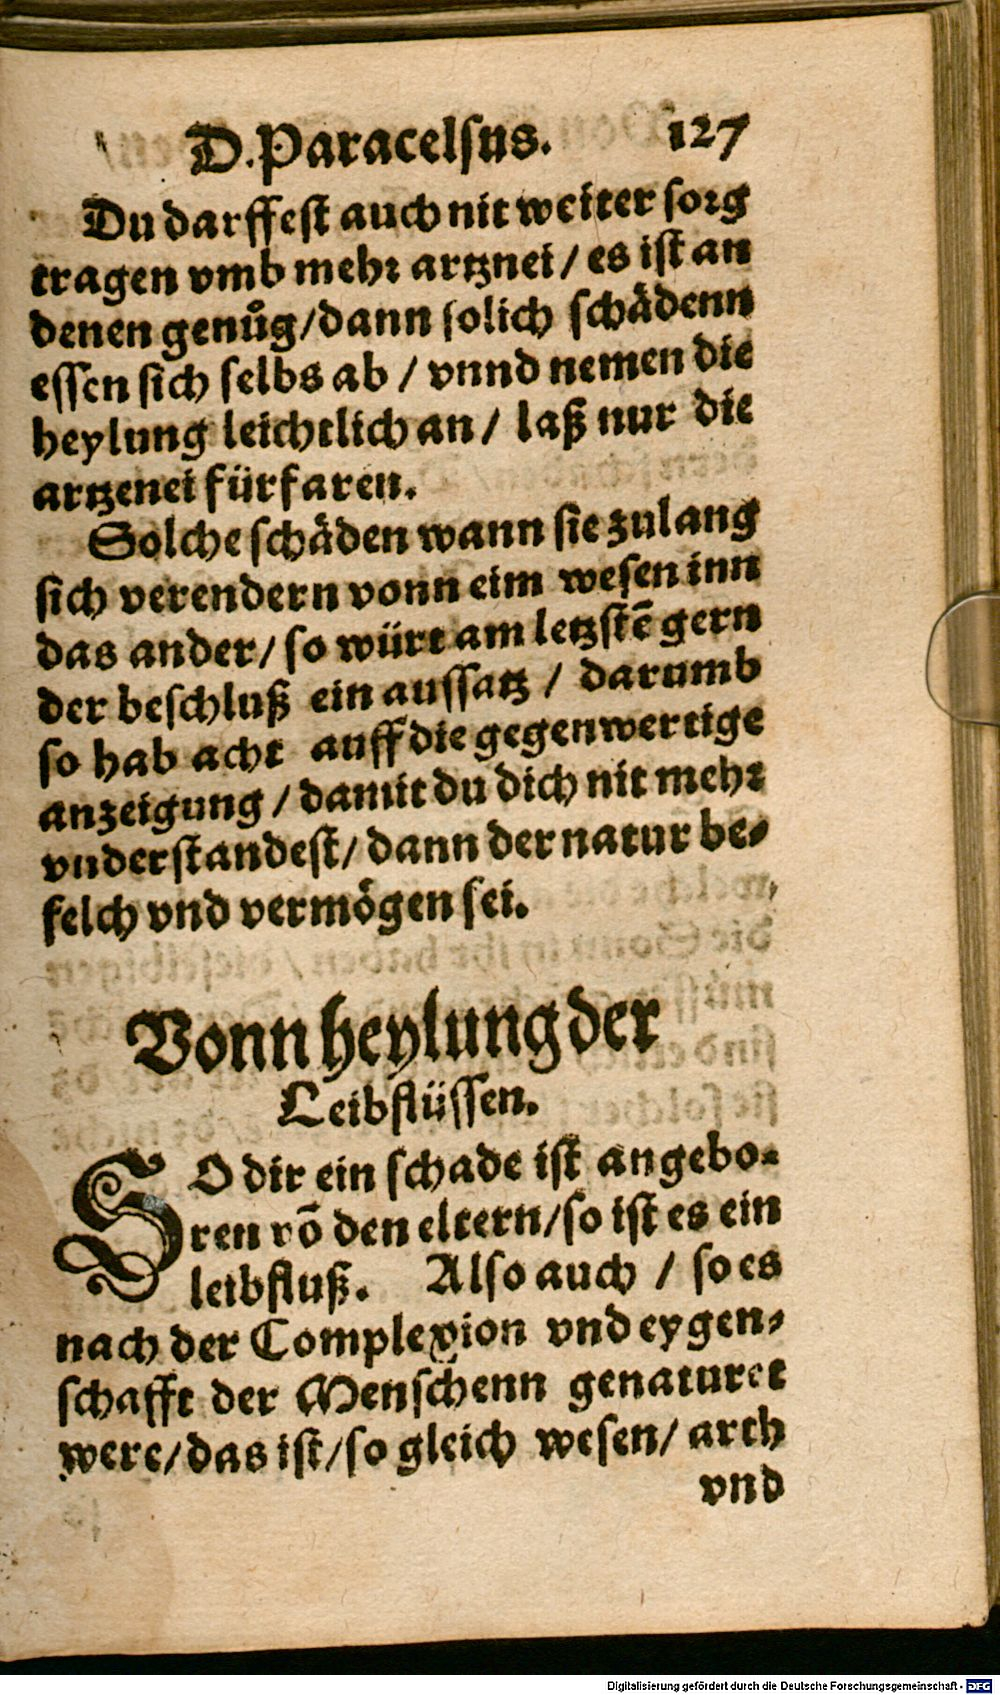 D. Paracelsus. 127
Du darffest auch nit weiter sorg
tragen vmb mehr artznei / es ist an
denen genůg / dann solich schädenn
essen sich selbs ab / vnnd nemen die
heylung leichtlich an / laß nur die
artzenei fürfaren.
Solche schäden wann sie zulang
sich verendern vonn eim wesen inn
das ander / so würt am letzstē gern
der beschluß ein aussatz / darumb
so hab acht auff die gegenwertige
anzeigung / damit du dich nit mehr
vnderstandest / dann der natur be-
felch vnd vermögen sei.
Vonn heylung der
Leibflüssen.
SO dir ein schade ist angebo-
ren võ den eltern / so ist es ein
leibfluß. Also auch / so es
nach der Complexion vnd eygen-
schafft der Menschenn genaturet
were / das ist / so gleich wesen / arth
vnd
Digitalisierung gefördert durch die Deutsche Forschungsgemeinschaft - DFG